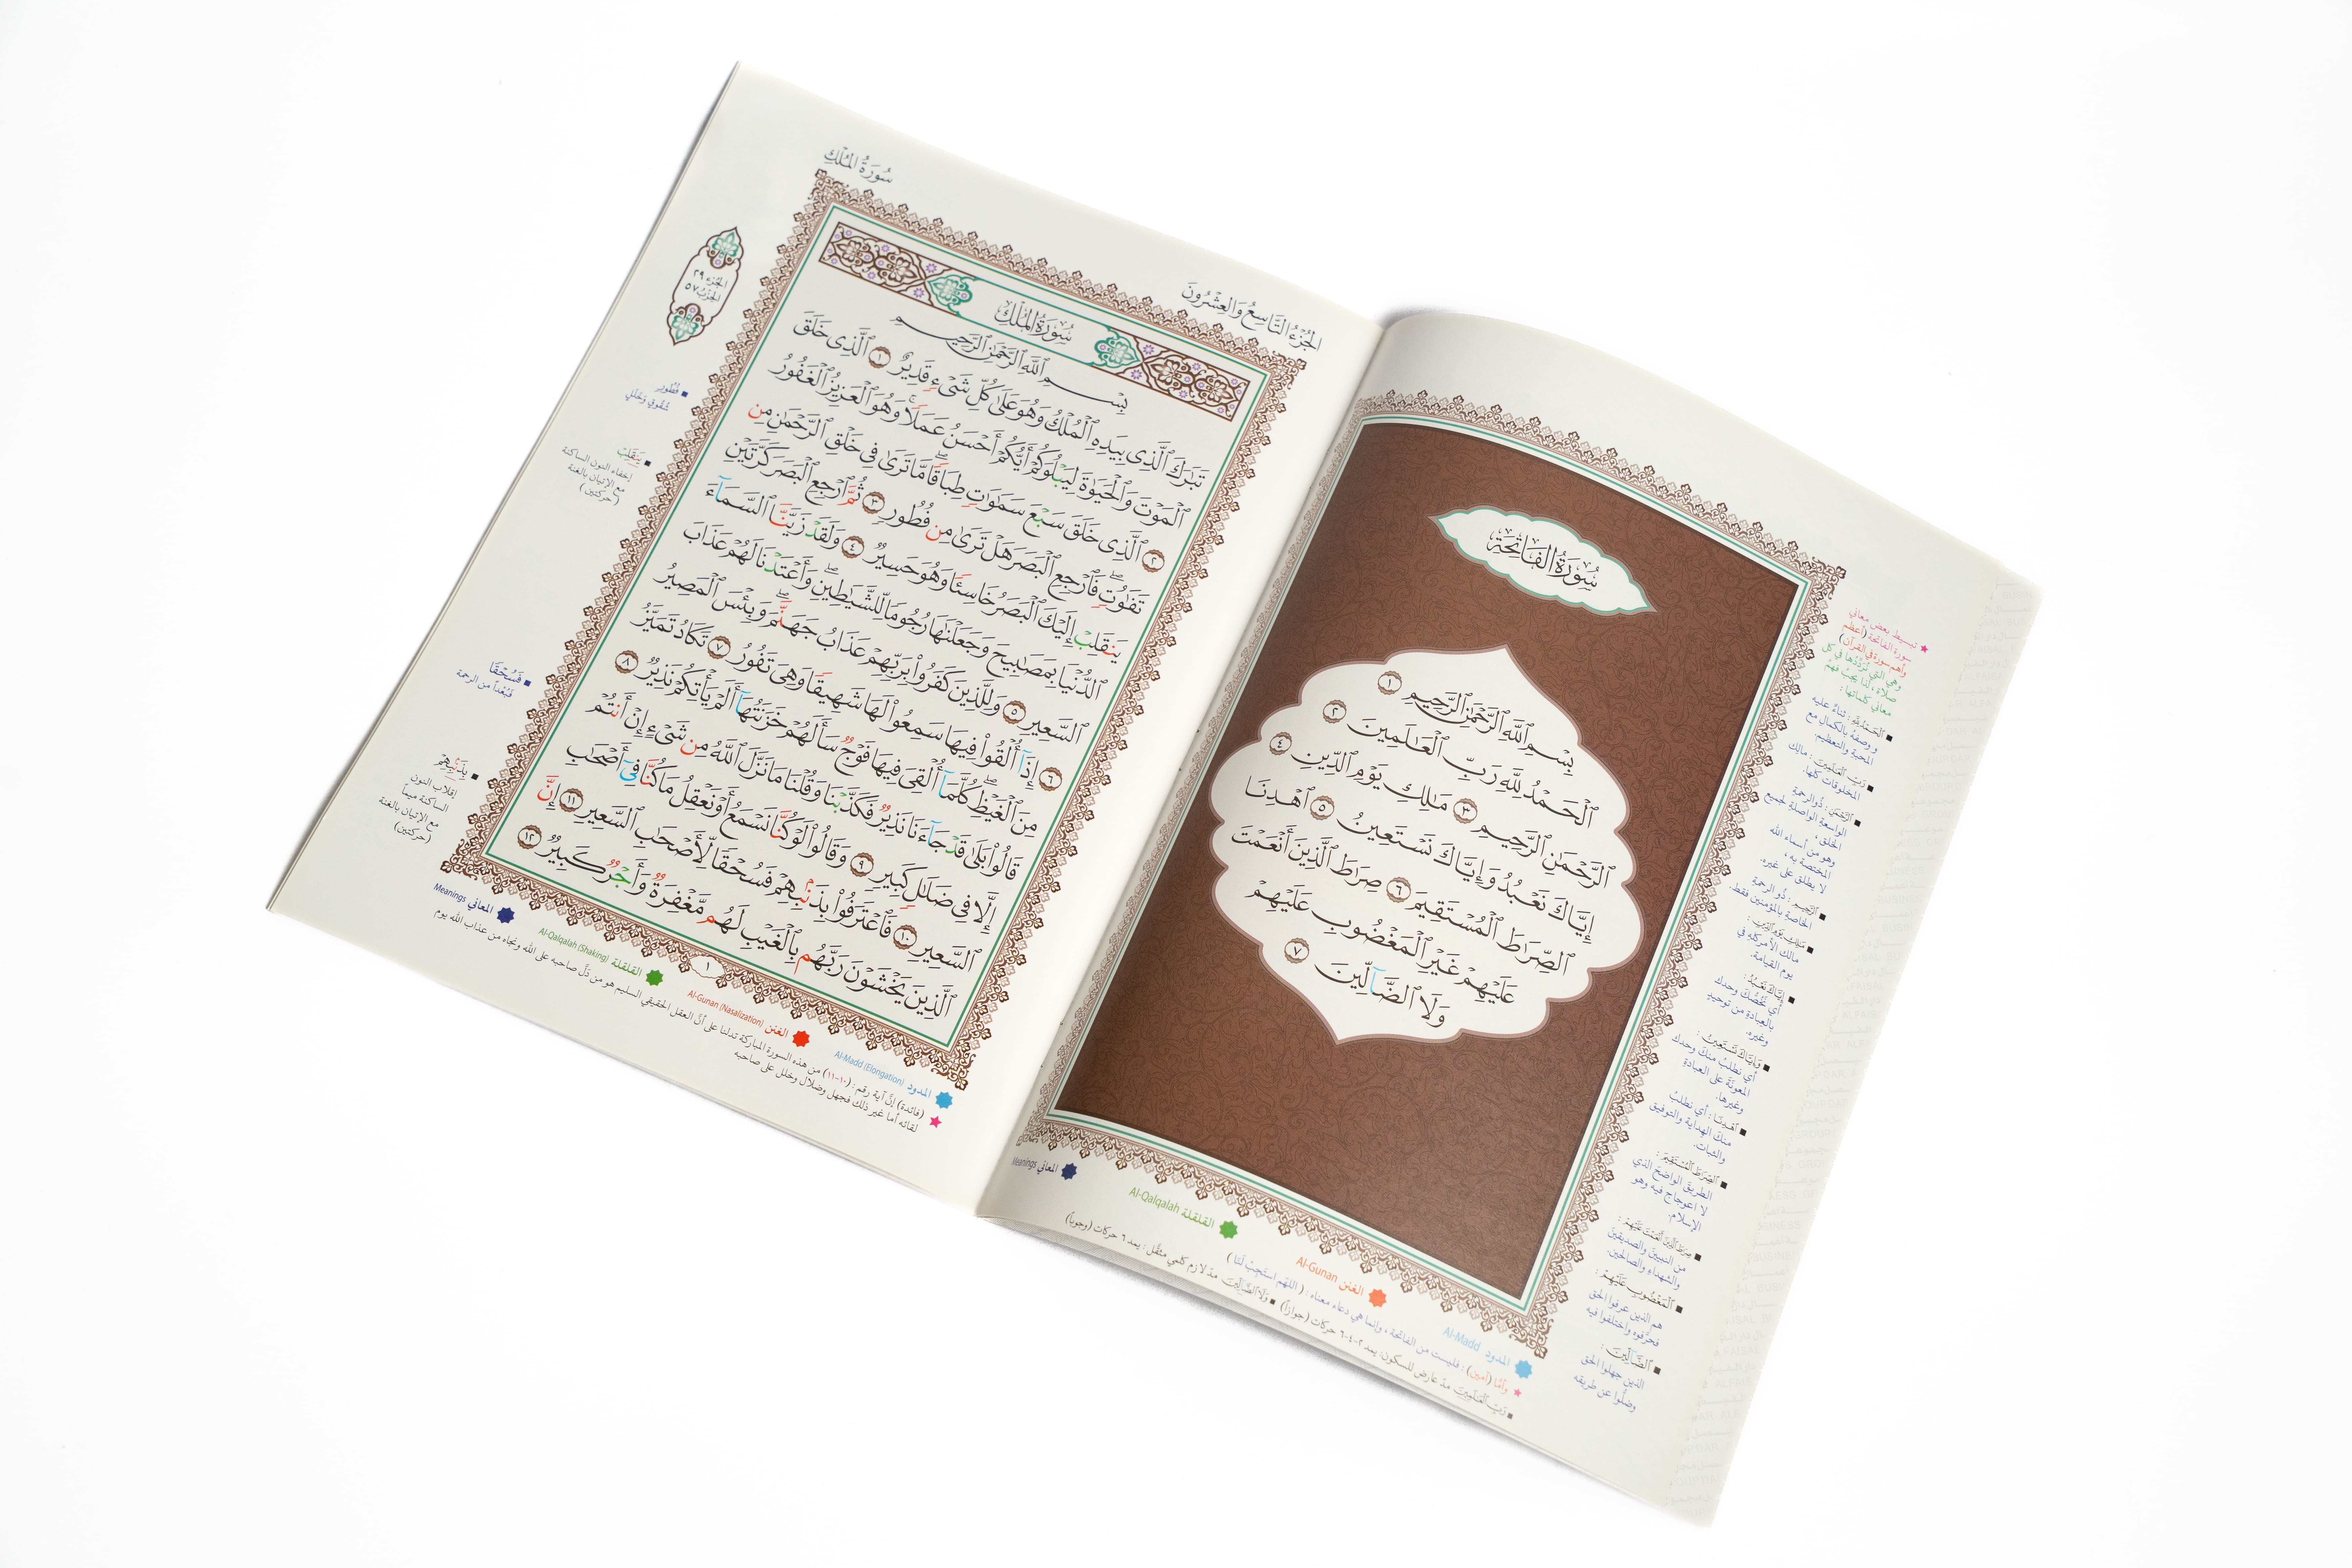 سُورَةُ الفَاتِحَةِ
بِسْمِ ٱللَّهِ ٱلرَّحْمَٰنِ ٱلرَّحِيمِ ١
ٱلْحَمْدُ لِلَّهِ رَبِّ ٱلْعَٰلَمِينَ ٢
ٱلرَّحْمَٰنِ ٱلرَّحِيمِ ٣ مَٰلِكِ يَوْمِ ٱلدِّينِ ٤
إِيَّاكَ نَعْبُدُ وَإِيَّاكَ نَسْتَعِينُ ٥ ٱهْدِنَا
ٱلصِّرَٰطَ ٱلْمُسْتَقِيمَ ٦ صِرَٰطَ ٱلَّذِينَ أَنْعَمْتَ
عَلَيْهِمْ غَيْرِ ٱلْمَغْضُوبِ عَلَيْهِمْ
وَلَا ٱلضَّآلِّينَ ٧
★ تبسيط بعض معاني
سورة الفاتحة (أعظم
وأهم سورة في القرآن)
وهي التي نُرَدِّدُها في كل
صلاة، لذا يجبُ فهمُ
معاني كلماتها:
■ ٱلْحَمْدُ لِلَّهِ: ثناءٌ عليه
ووصفه بالكمال مع
المحبة والتعظيم.
■ رَبِّ ٱلْعَٰلَمِينَ: مالك
المخلوقات كلها.
■ ٱلرَّحْمَٰنِ: ذُو الرحمةِ
الواسعةِ الواصلة لجميع
الخلق،
وهو من أسماء الله
المختصة به،
لا يطلق على غيره.
■ ٱلرَّحِيمِ: ذُو الرحمةِ
الخاصة بالمؤمنين فقط.
■ مَٰلِكِ يَوْمِ ٱلدِّينِ:
مالك الأمر كله في
يوم القيامة.
■ إِيَّاكَ نَعْبُدُ:
أي نَخُصُّكَ وحدك
بالعبادةِ من توحيدٍ
وغيره.
■ وَإِيَّاكَ نَسْتَعِينُ:
أي نطلبُ منكَ وحدك
المعونَة على العبادةِ
وغيرها.
■ ٱهْدِنَا: أي نطلبُ
منكَ الهداية والتوفيق
والثبات.
■ ٱلصِّرَٰطَ ٱلْمُسْتَقِيمَ:
الطريقَ الواضحَ الذي
لا اعوجاج فيه وهو
الإسلام.
■ صِرَٰطَ ٱلَّذِينَ أَنْعَمْتَ عَلَيْهِمْ:
من النبيين والصديقين
والشهداءِ والصالحين.
■ ٱلْمَغْضُوبِ عَلَيْهِمْ:
هم الذين عرفوا الحق
فحرَّفوه واختلفوا فيه
■ ٱلضَّآلِّينَ:
الذين جهلوا الحق
وضلُّوا عن طريقه
المدود Al-Madd الغنن Al-Gunan القلقلة Al-Qalqalah المعاني Meanings
★ وأمَّا (آمين): فليست من الفاتحة، وإنما هي دعاء معناه: (اللهم استَجِبْ لَنَا)
■ رَبِّ ٱلْعَٰلَمِينَ مدّ عارض للسكون: يمد ٢-٤-٦ حركات (جوازاً) ■ وَلَا ٱلضَّآلِّينَ مدّ لازم كلمي مثقَّل: يمد ٦ حركات (وجوباً)
الجُزْءُ التَّاسِعُ وَالعِشْرُونَ
سُورَةُ المُلْكِ
الجُزْء ٢٩
الحِزْبُ ٥٧
سُورَةُ المُلْكِ
بِسْمِ ٱللَّهِ ٱلرَّحْمَٰنِ ٱلرَّحِيمِ
تَبَٰرَكَ ٱلَّذِى بِيَدِهِ ٱلْمُلْكُ وَهُوَ عَلَىٰ كُلِّ شَىْءٍ قَدِيرٌ ١ ٱلَّذِى خَلَقَ
ٱلْمَوْتَ وَٱلْحَيَوٰةَ لِيَبْلُوَكُمْ أَيُّكُمْ أَحْسَنُ عَمَلًا ۚ وَهُوَ ٱلْعَزِيزُ ٱلْغَفُورُ
٢ ٱلَّذِى خَلَقَ سَبْعَ سَمَٰوَٰتٍ طِبَاقًا ۖ مَّا تَرَىٰ فِى خَلْقِ ٱلرَّحْمَٰنِ مِن
تَفَٰوُتٍ ۖ فَٱرْجِعِ ٱلْبَصَرَ هَلْ تَرَىٰ مِن فُطُورٍ ٣ ثُمَّ ٱرْجِعِ ٱلْبَصَرَ كَرَّتَيْنِ
يَنقَلِبْ إِلَيْكَ ٱلْبَصَرُ خَاسِئًا وَهُوَ حَسِيرٌ ٤ وَلَقَدْ زَيَّنَّا ٱلسَّمَآءَ
ٱلدُّنْيَا بِمَصَٰبِيحَ وَجَعَلْنَٰهَا رُجُومًا لِّلشَّيَٰطِينِ ۖ وَأَعْتَدْنَا لَهُمْ عَذَابَ
ٱلسَّعِيرِ ٥ وَلِلَّذِينَ كَفَرُوا۟ بِرَبِّهِمْ عَذَابُ جَهَنَّمَ ۖ وَبِئْسَ ٱلْمَصِيرُ
٦ إِذَآ أُلْقُوا۟ فِيهَا سَمِعُوا۟ لَهَا شَهِيقًا وَهِىَ تَفُورُ ٧ تَكَادُ تَمَيَّزُ
مِنَ ٱلْغَيْظِ ۖ كُلَّمَآ أُلْقِىَ فِيهَا فَوْجٌ سَأَلَهُمْ خَزَنَتُهَآ أَلَمْ يَأْتِكُمْ نَذِيرٌ ٨
قَالُوا۟ بَلَىٰ قَدْ جَآءَنَا نَذِيرٌ فَكَذَّبْنَا وَقُلْنَا مَا نَزَّلَ ٱللَّهُ مِن شَىْءٍ إِنْ أَنتُمْ
إِلَّا فِى ضَلَٰلٍ كَبِيرٍ ٩ وَقَالُوا۟ لَوْ كُنَّا نَسْمَعُ أَوْ نَعْقِلُ مَا كُنَّا فِىٓ أَصْحَٰبِ
ٱلسَّعِيرِ ١٠ فَٱعْتَرَفُوا۟ بِذَنۢبِهِمْ فَسُحْقًا لِّأَصْحَٰبِ ٱلسَّعِيرِ ١١ إِنَّ
ٱلَّذِينَ يَخْشَوْنَ رَبَّهُم بِٱلْغَيْبِ لَهُم مَّغْفِرَةٌ وَأَجْرٌ كَبِيرٌ ١٢
■ فُطُورٍ
شُقُوقٍ وَخَلَلٍ
■ يَنقَلِبْ
إخفاء النون الساكنة
مع الإتيان بالغنة
(حركتين)
■ فَسُحْقًا
فَبُعْداً من الرحمة
■ بِذَنۢبِهِمْ
إقلاب النون
الساكنة ميماً
مع الإتيان بالغنة
(حركتين)
١
المدود Al-Madd (Elongation) الغنن Al-Gunan (Nasalization) القلقلة Al-Qalqalah (Shaking) المعاني Meanings
★ (فائدة) إنَّ آية رقم: (١٠-١١) من هذه السورة المباركة تدلنا على أنَّ العقل الحقيقي السليم هو من دَلَّ صاحبه على الله ونجاه من عذاب الله يوم
لقائه أما غير ذلك فجهل وضلال وخلل على صاحبه